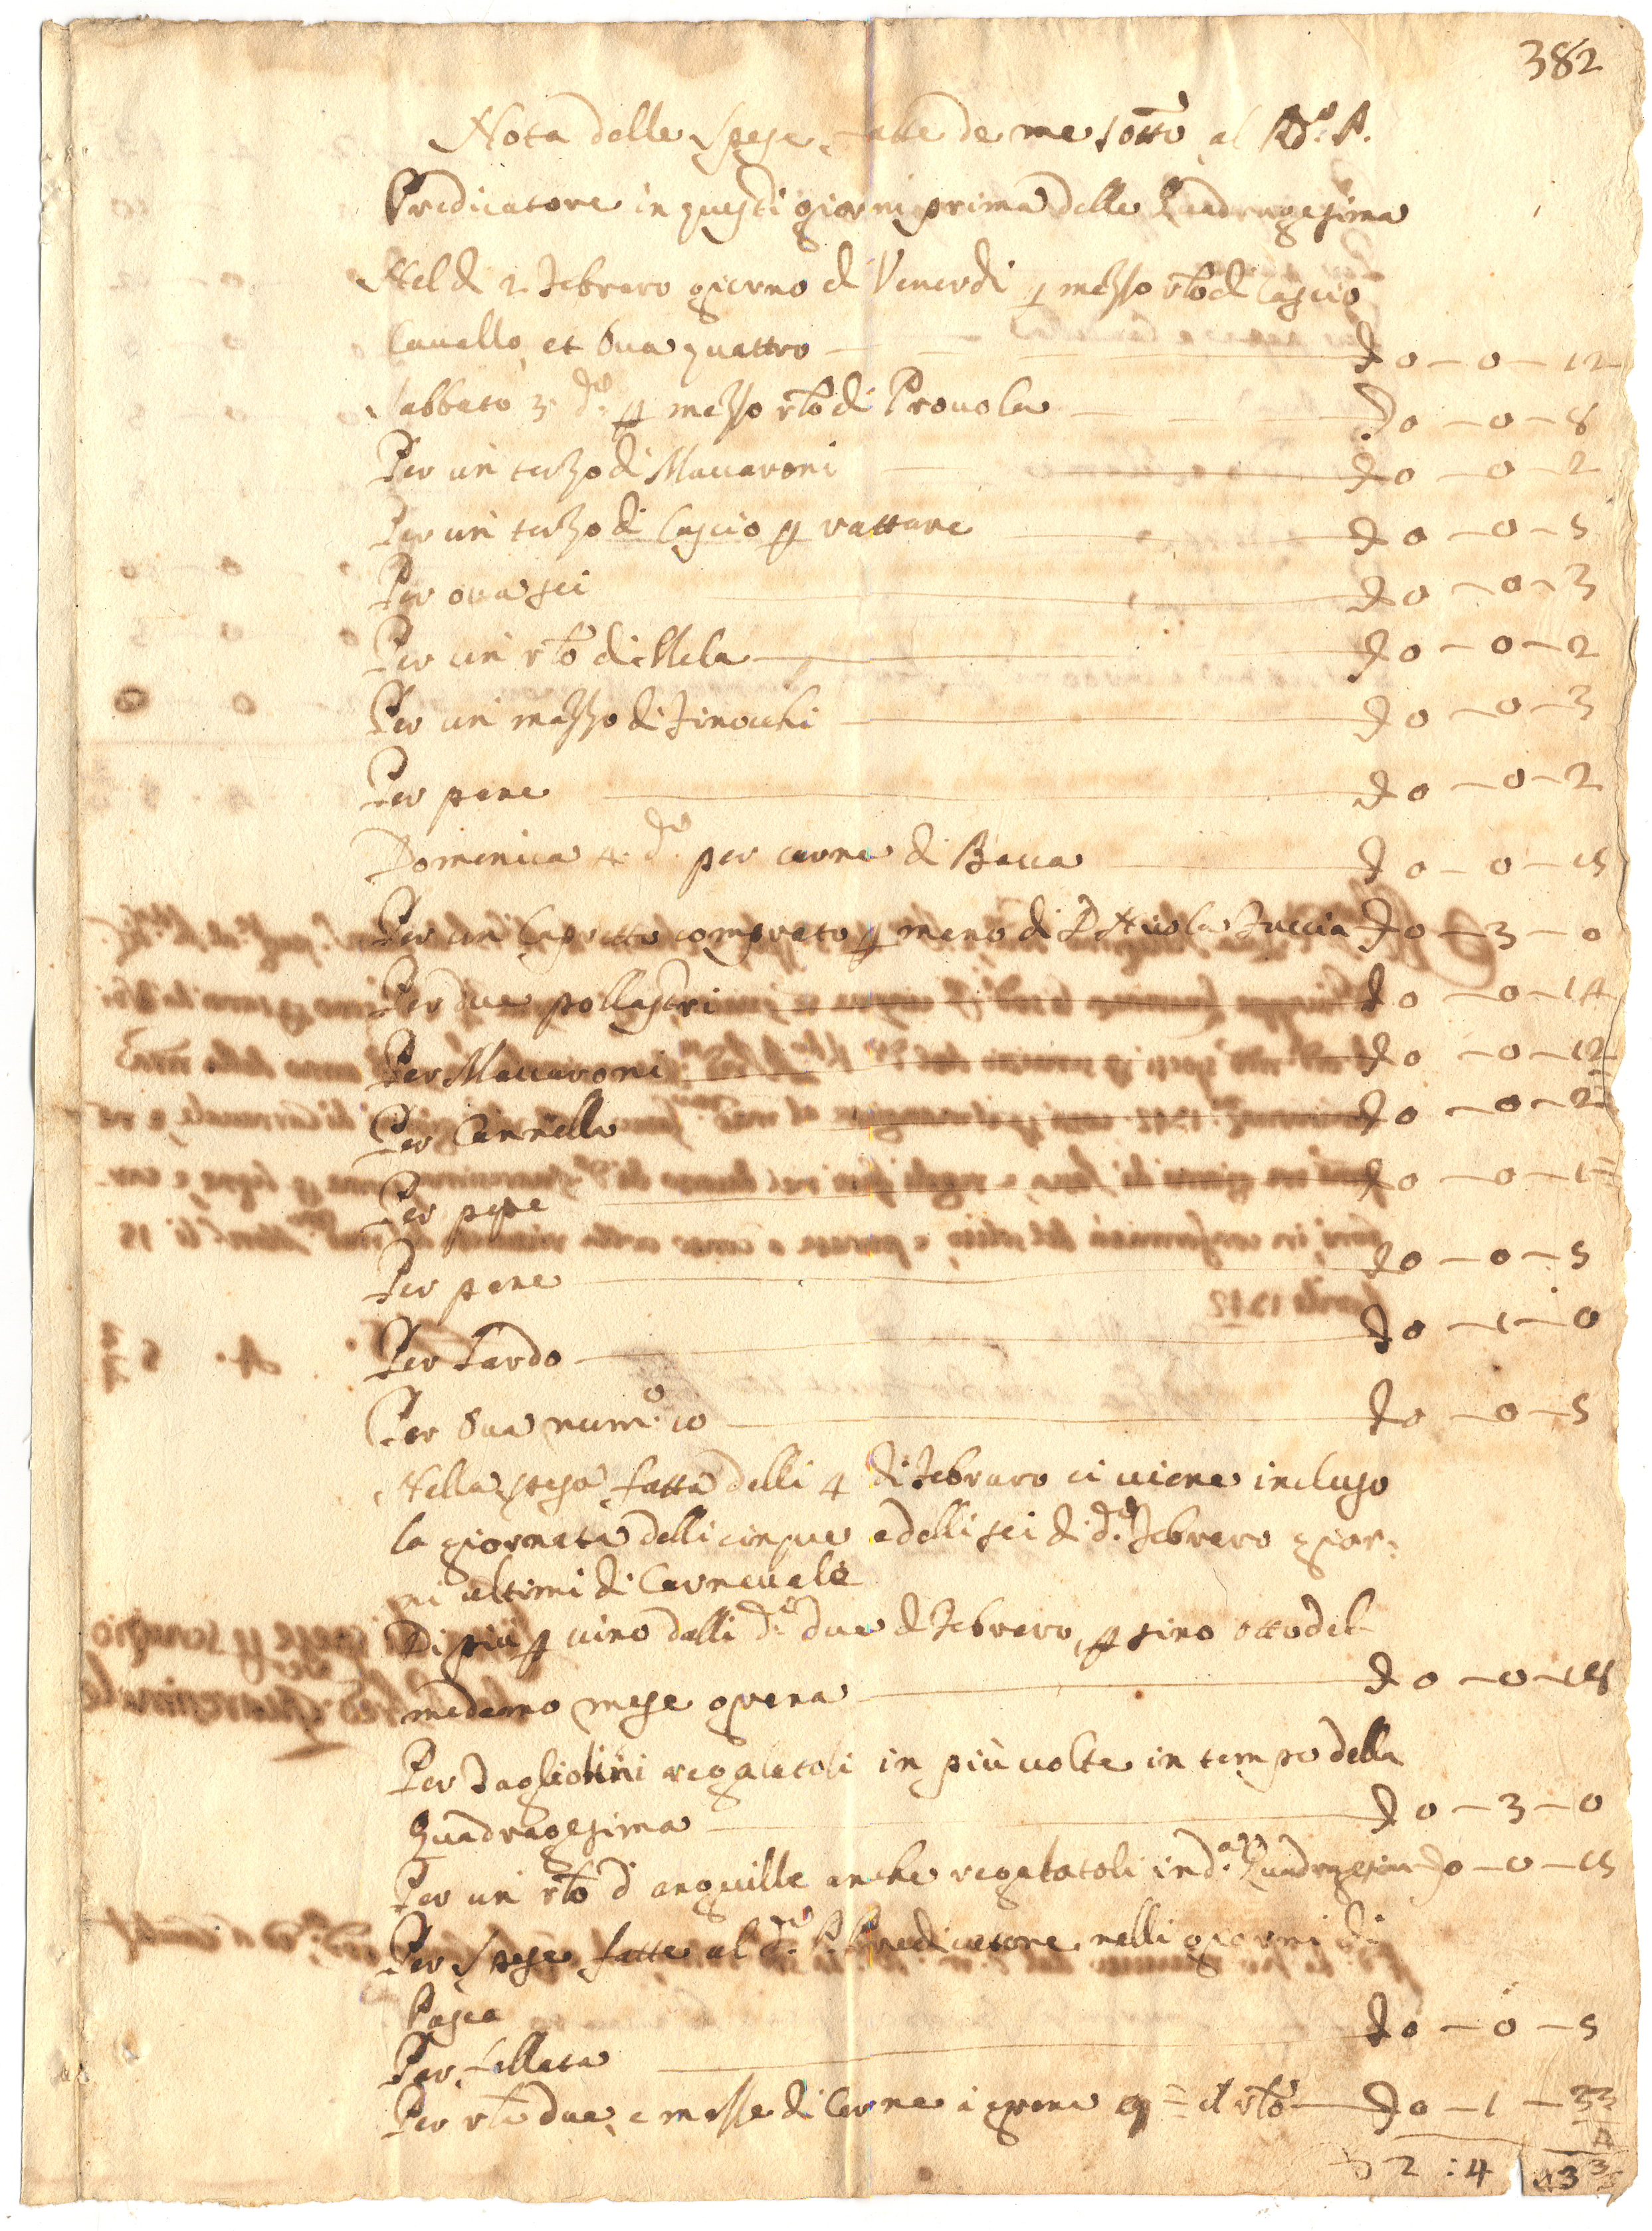 382
Nota delle spese fatte da me sotto al Rdo: P.
Predicatore in questi giorni prima della Quadragesima
Nel dì 2 Febraro giorno di Venerdi p mezzo rlo di Cascio
Cauallo, et Oua quattro — D 0 — 0 — 12
Sabbato 3. do. p mezzo rlo di Prouola — D 0 — 0 — 8
Per un terzo di Maccaroni — D 0 — 0 — 2
Per un terzo di Cascio p rattare — D 0 — 0 — 5
Per oua sei — D 0 — 0 — 3
Per un rlo di Mela — D 0 — 0 — 2
Per un mazzo di Finocchi — D 0 — 0 — 3
Per pane — D 0 — 0 — 2
Domenica 4. do. per carne di Bacca — D 0 — 0 — 15
Per un Capretto comprato p mano di D. Nicola Tuccia D 0 — 3 — 0
Per due pollastri — D 0 — 0 — 14
Per Maccaroni — D 0 — 0 — 12
Per Cannella — D 0 — 0 — 2
Per pepe — D 0 — 0 — 1
Per pane — D 0 — 0 — 5
Per Lardo — D 0 — 1 — 0
Per Oua num:o 10 — D 0 — 0 — 5
Nella spesa fatta delli 4 di Febraro ci uiene incluso
la giornata delli cinque e delli sei di do. Febraro gior:
ni ultimi di Carneuale
Di più p uino dalli di. due di Febraro, p sino otto del
medemo mese grana — D 0 — 0 — 18
Per Tagliolini regalatoli in più uolte in tempo della
Quadragesima — D 0 — 3 — 0
Per un rlo d'anguille anche regalatoli in da. Quadragesima D 0 — 0 — 15
Per spese fatte al do. P. Predicatore nelli giorni di
Pasca
Per fellata — D 0 — 0 — 5
Per rla due, e mezze di Carne a grana 9 = il rlo — D 0 — 1 —
D 2 : 4